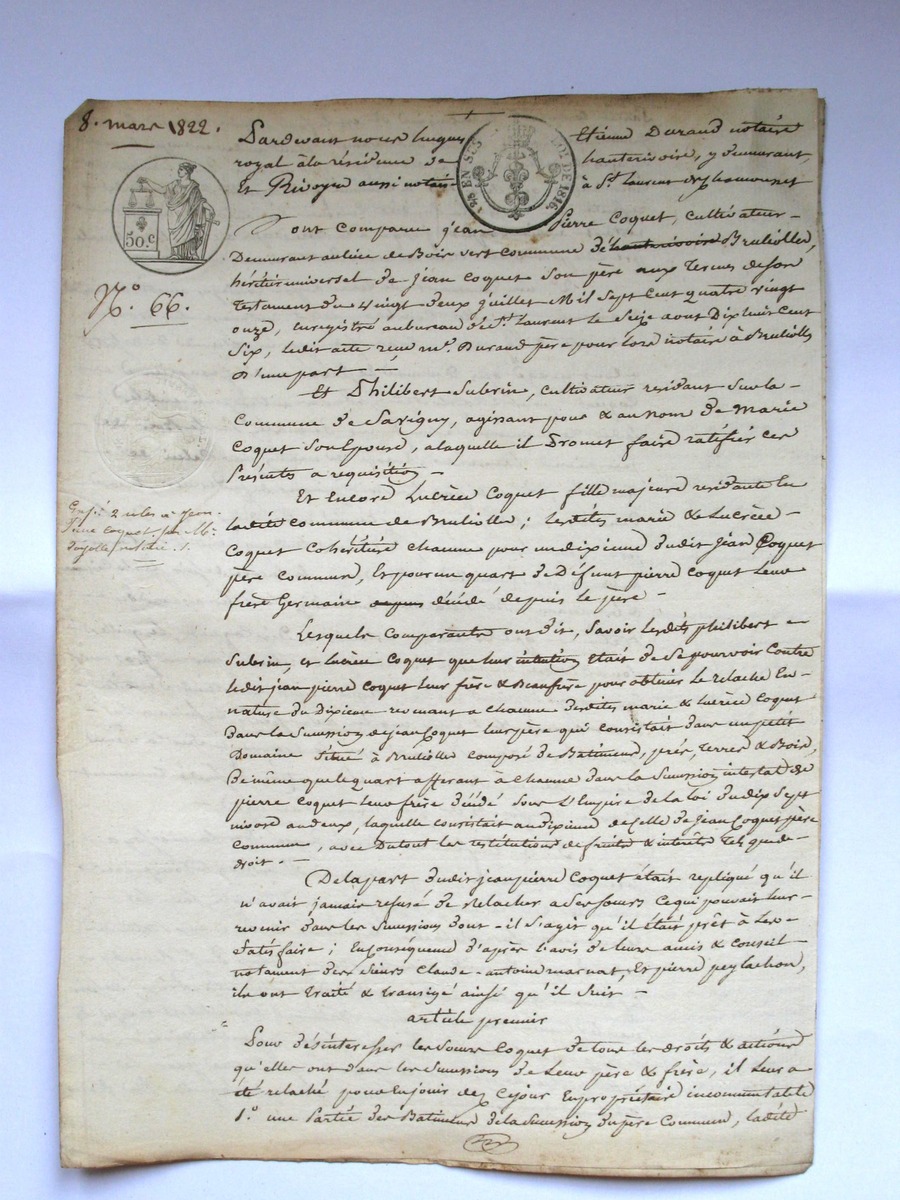 8. mars 1822.
Pardevant nous hugues Etienne Durand notaire
royal à la résidence de hauterivoire, y demeurant,
Et Rivoyre aussi notaire à St. Laurent de Chamousset
EN SUS
LOI DE 1816.
50. c
N.° 66.
ont comparu jean Pierre Coquet, cultivateur
Demeurant au lieu de Bois vert commune de hauterivoire Brulliolles,
héritier universel de jean Coquet son père aux Termes de son
Testament du vingt deux juillet Mil sept Cent quatre vingt
onze, enregistré au bureau de St. Laurent le seize aout Dix huit Cent
Six, ledit acte reçu me. Durand père pour lors notaire à Brulliolles
D'une part —
Et Philibert Subrin, cultivateur residant sur la
Commune de Savigny, agissant pour & au nom de Marie
Coquet son Epouse, a laquelle il Promet faire ratifier ces
Présentes a requisition —
Et Encore Lucrèce Coquet fille majeure residante en
ladite commune de Brulliolle; lesdites marie & Lucrèce
Coquet Cohéritière chacune pour un dixième dudit Jean Coquet
père commun, Et pour un quart de Défunt pierre Coquet Leur
frère Germain depuis décédé depuis le père —
Exp. 2 roles à Jean
Pierre coquet. par Me.
notaire
Lesquels Comparants ont dit, Savoir lesdits philibert
Subrin, et Lucrèce Coquet que leur intention était de se pourvoir Contre
ledit jean pierre Coquet leur frère & Beaufrère pour obtenir le relache En
nature du Dixieme revenant a chacune desdites marie & lucrèce Coquet
Dans la Succession de jean Coquet leur père qui consistait dans un petit
Domaine situé à Brulliolle composé de Batiments, prés, terres & Bois,
De même que le quart afferant à chacune dans la Succession intestat de
pierre Coquet leur frère décédé sous l'Empire de la Loi du dix sept
nivose an deux, laquelle consistait au dixieme de celle de Jean Coquet père
Commun, avec Dutout les restitutions de fruits & intérêts tels que de
droit. —
De la part dudit jean pierre Coquet était repliqué qu'il
n'avait jamais refusé de relacher a ses sœurs Ce qui pouvait leur
revenir dans les Successions dont il s'agit qu'il était prêt à les
satisfaire; En conséquence d'après l'avis de leurs amis & Conseil
notament des sieurs Claude-antoine marnat, Et pierre peylachon,
ils ont traité & transigé ainsi qu'il suit —
article premier
Pour désintéresser les sœurs Coquet de tous les droits & actions
qu'elles ont dans les Successions de leur père & frère, il leur a
été relaché pour En jouir dez ce jour En propriétaire incommutable
1.° une Partie des Batiments de la Succession du père Commun, ladite